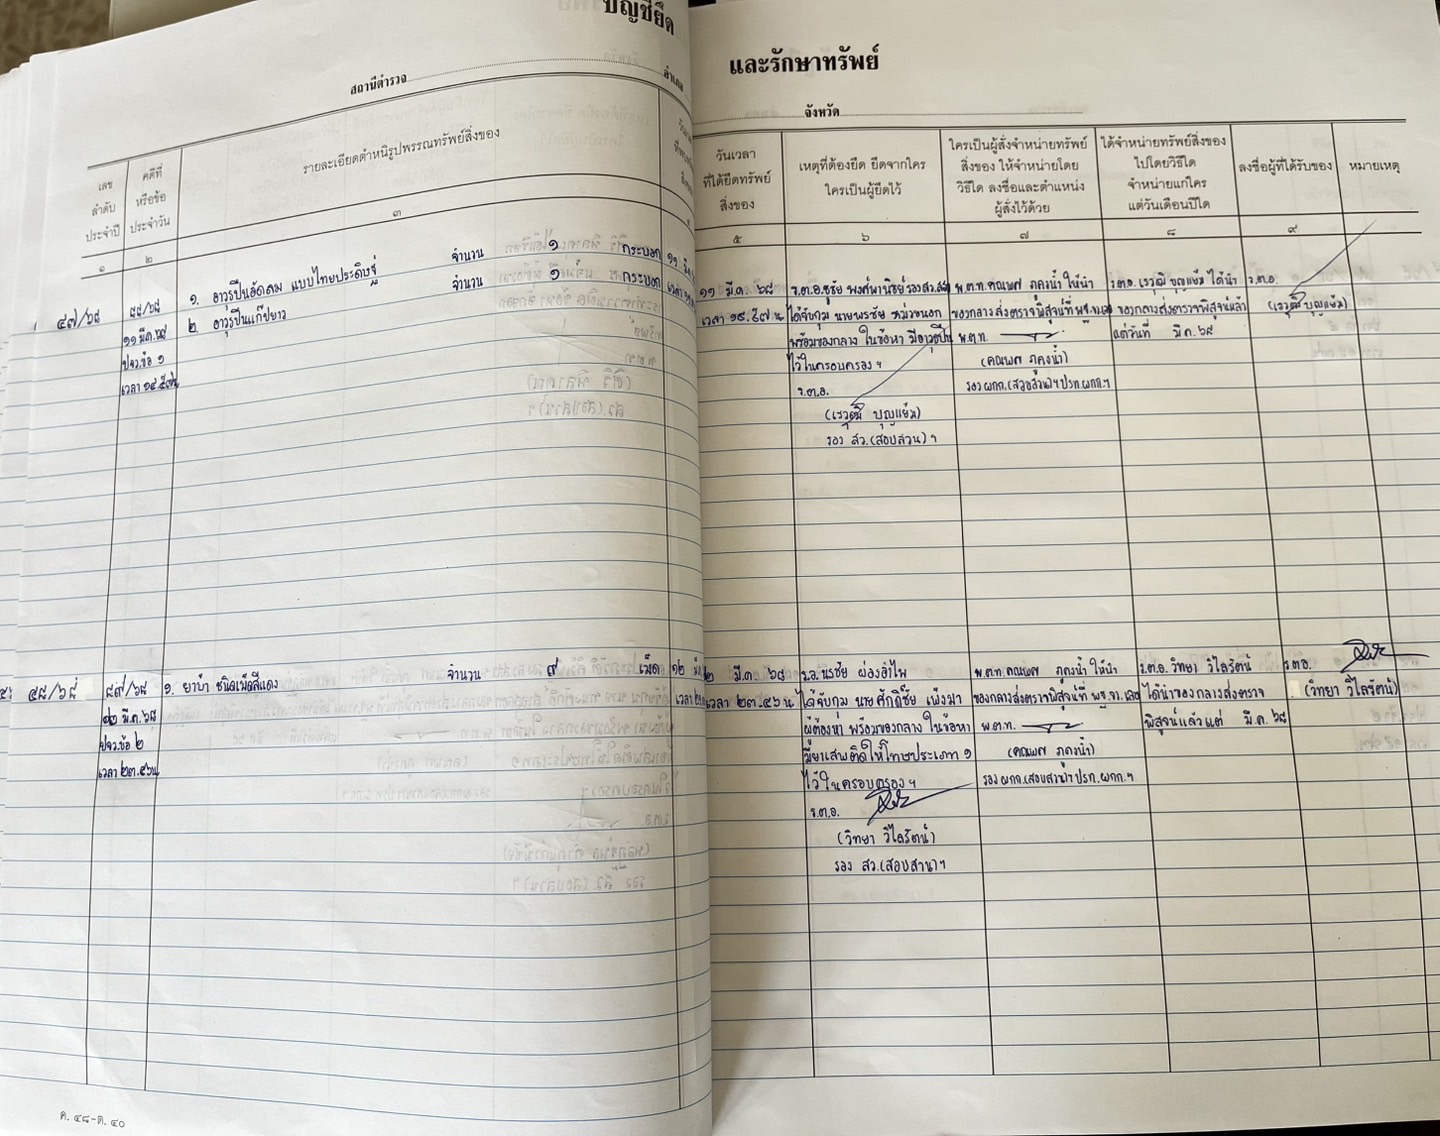 บัญชียึด
และรักษาทรัพย์
สถานีตำรวจ
อำเภอ
จังหวัด
เลข
ลำดับ
ประจำปี
คดีที่
หรือข้อ
ประจำวัน
รายละเอียดตำหนิรูปพรรณทรัพย์สิ่งของ
วันเวลา
ที่ได้ยึดทรัพย์
สิ่งของ
เหตุที่ต้องยึด ยึดจากใคร
ใครเป็นผู้ยึดไว้
ใครเป็นผู้สั่งจำหน่ายทรัพย์
สิ่งของ ให้จำหน่ายโดย
วิธีใด ลงชื่อและตำแหน่ง
ผู้สั่งไว้ด้วย
ได้จำหน่ายทรัพย์สิ่งของ
ไปโดยวิธีใด
จำหน่ายแก่ใคร
แต่วันเดือนปีใด
ลงชื่อผู้ที่ได้รับของ
หมายเหตุ
๑
๒
๓
๕
๖
๗
๘
๙
๔๗/๖๘
๑๑ มี.ค. ๖๘
ปจว.ข้อ ๑
๑. อาวุธปืนอัดลม แบบไทยประดิษฐ์ จำนวน ๑ กระบอก
๒. อาวุธปืนแก๊ปยาว จำนวน ๑ กระบอก
๑๑ มี.ค. ๖๘
ร.ต.อ.ชูชัย
ได้จับกุม นายพรชัย
พร้อมของกลาง ในข้อหา มีอาวุธปืน
ไว้ในครอบครองฯ
ร.ต.อ.
(เรวุฒิ บุญแย้ม)
รอง สว.(สอบสวน)ฯ
พ.ต.ท. ให้นำ
ของกลางส่งตรวจพิสูจน์ที่
พ.ต.ท.
รอง ผกก.(สอบสวน)ฯ ปรท.ผกก.ฯ
ร.ต.อ. เรวุฒิ บุญแย้ม ได้นำ
ของกลางส่งตรวจพิสูจน์แล้ว
แต่วันที่ มี.ค. ๖๘
ร.ต.อ.
(เรวุฒิ บุญแย้ม)
๔๘/๖๘
๘๗/๖๘
๑๒ มี.ค. ๖๘
ปจว.ข้อ ๒
เวลา ๒๓.๕๖น
๑. ยาบ้า ชนิดเม็ดสีแดง จำนวน ๙ เม็ด
๒ มี.ค. ๖๘
เวลา ๒๓.๕๖ น
นรชัย ผ่องอำไพ
ได้จับกุม นายศักดิ์ชัย เพ็งมา
ผู้ต้องหา พร้อมของกลาง ในข้อหา
มียาเสพติดให้โทษประเภท ๑
ไว้ในครอบครองฯ
ร.ต.อ.
(วิทยา วิไลรัตน์)
รอง สว.(สอบสวน)ฯ
พ.ต.ท. ให้นำ
ของกลางส่งตรวจพิสูจน์ที่
พ.ต.ท.
รอง ผกก.(สอบสวน)ฯ ปรท.ผกก.ฯ
ร.ต.อ. วิทยา วิไลรัตน์
ได้นำของกลางส่งตรวจ
พิสูจน์แล้วแต่ มี.ค. ๖๘
ร.ต.อ.
(วิทยา วิไลรัตน์)
ค. ๔๘-ต. ๔๐